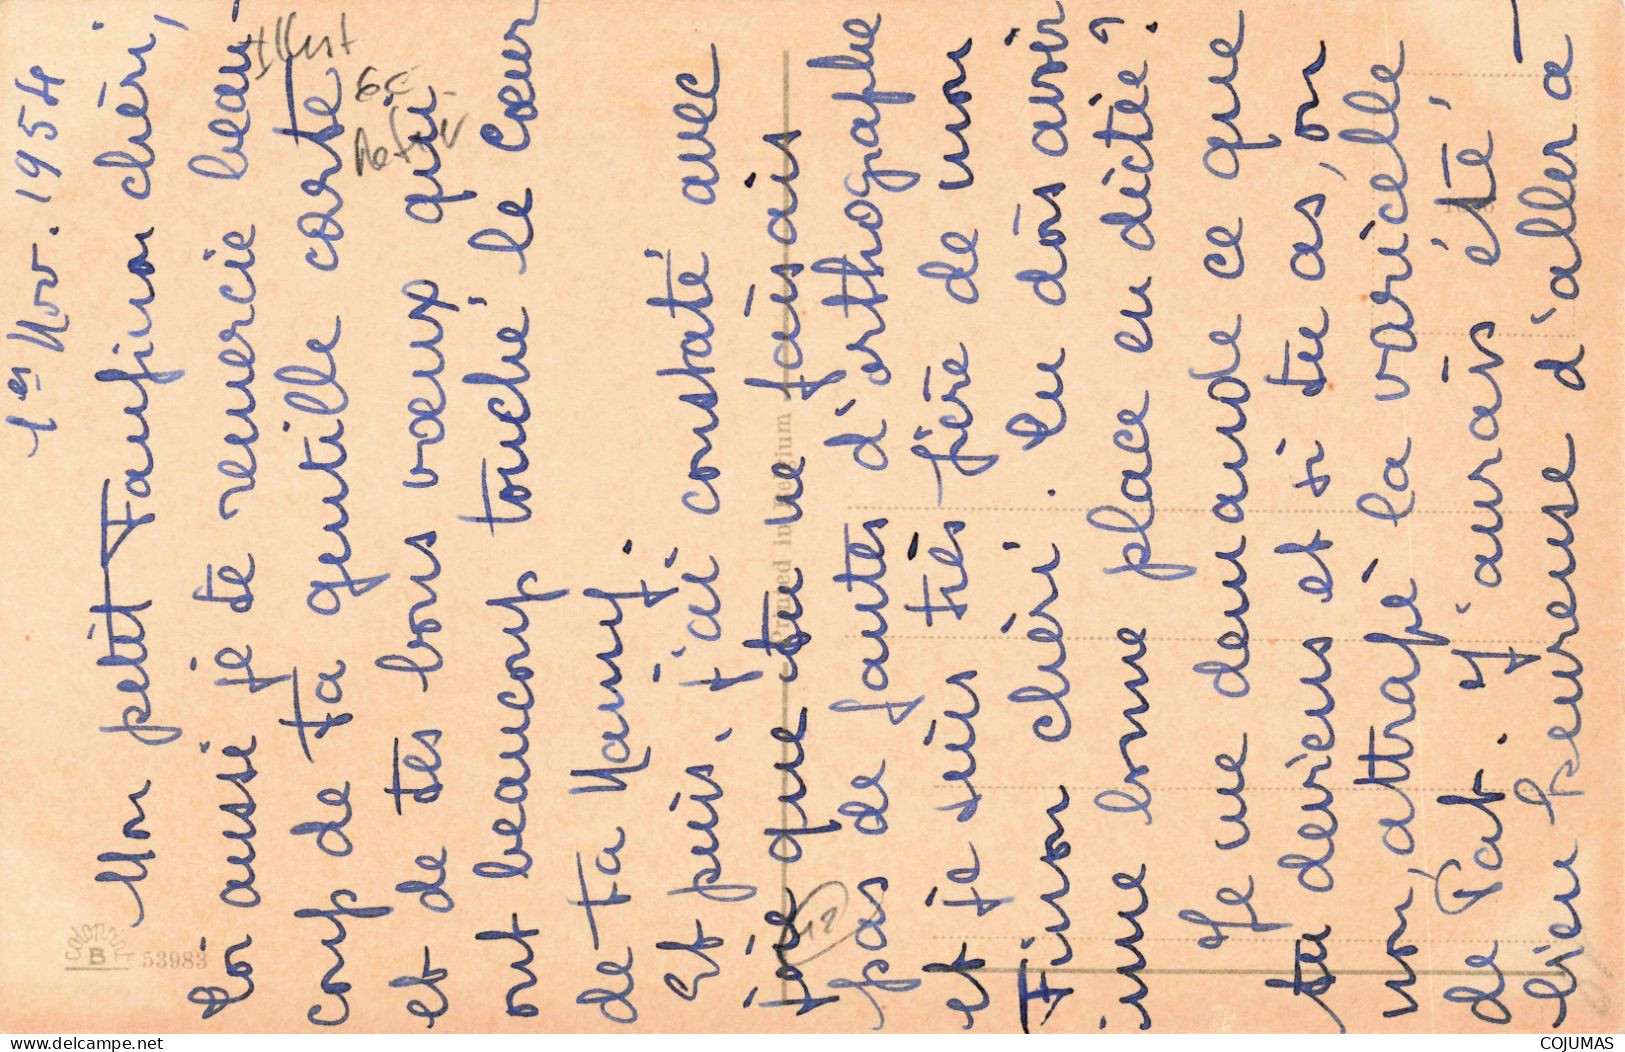 1er Nov. 1954
Mon petit Fanfinon chéri,
Toi aussi je te remercie beau-
coup de ta gentille carte
et de tes bons vœux qui
ont beaucoup touché le cœur
de ta Mamy.
Et puis, j'ai constaté avec
joie que tu ne fais ais
pas de fautes d'orthographe
et je suis très fière de mon
Finon chéri. Tu dois avoir
une bonne place en dictée ?
Je me demande ce que
tu deviens et si tu as, on
non, attrapé la varicelle
de Pat. J'aurais été,
bien heureuse d'aller à
Illust
Printed in Belgium
12
COLORPRINT
B
53983
delcampe.net
COJUMAS